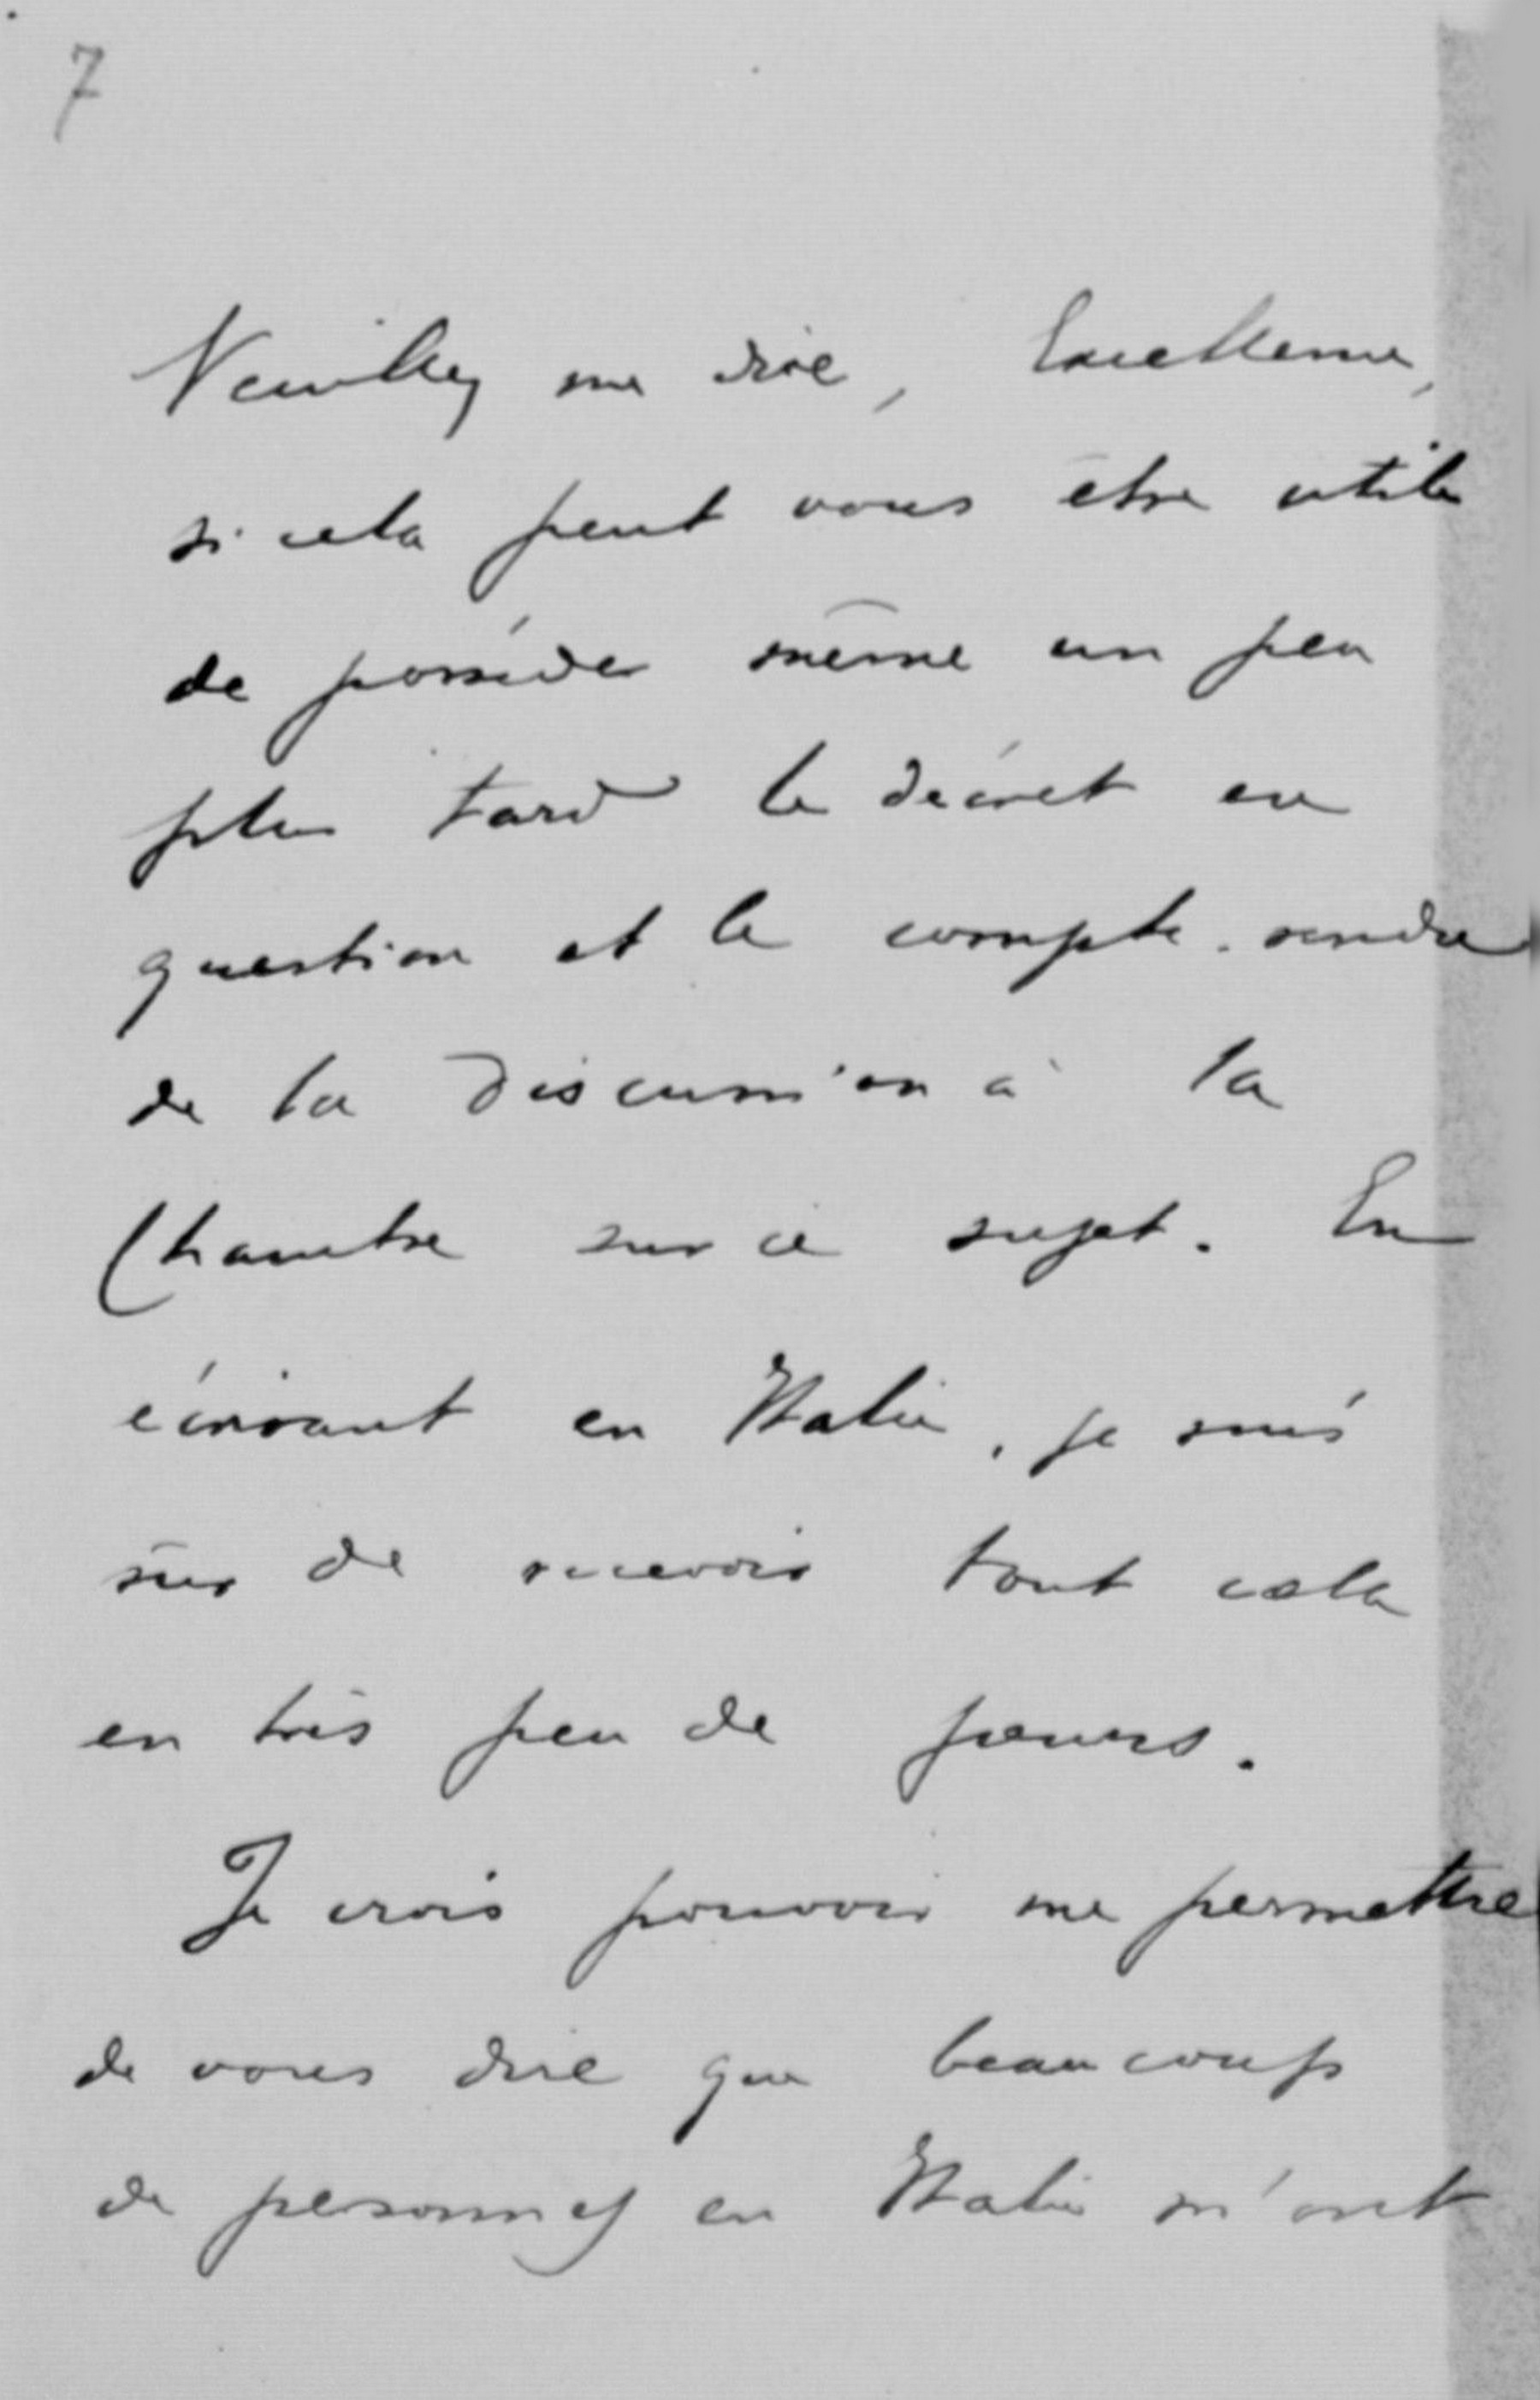 7
Veuillez me dire, Excellence,
si cela peut vous être utile
de posséder même un peu
plus tard le décret en
question et le compte-rendu
de la discussion à la
Chambre sur ce sujet. En
écrivant en Italie, je suis
sûr de recevoir tout cela
en très peu de jours.
Je crois pouvoir me permettre
de vous dire que beaucoup
de personnes en Italie m'ont